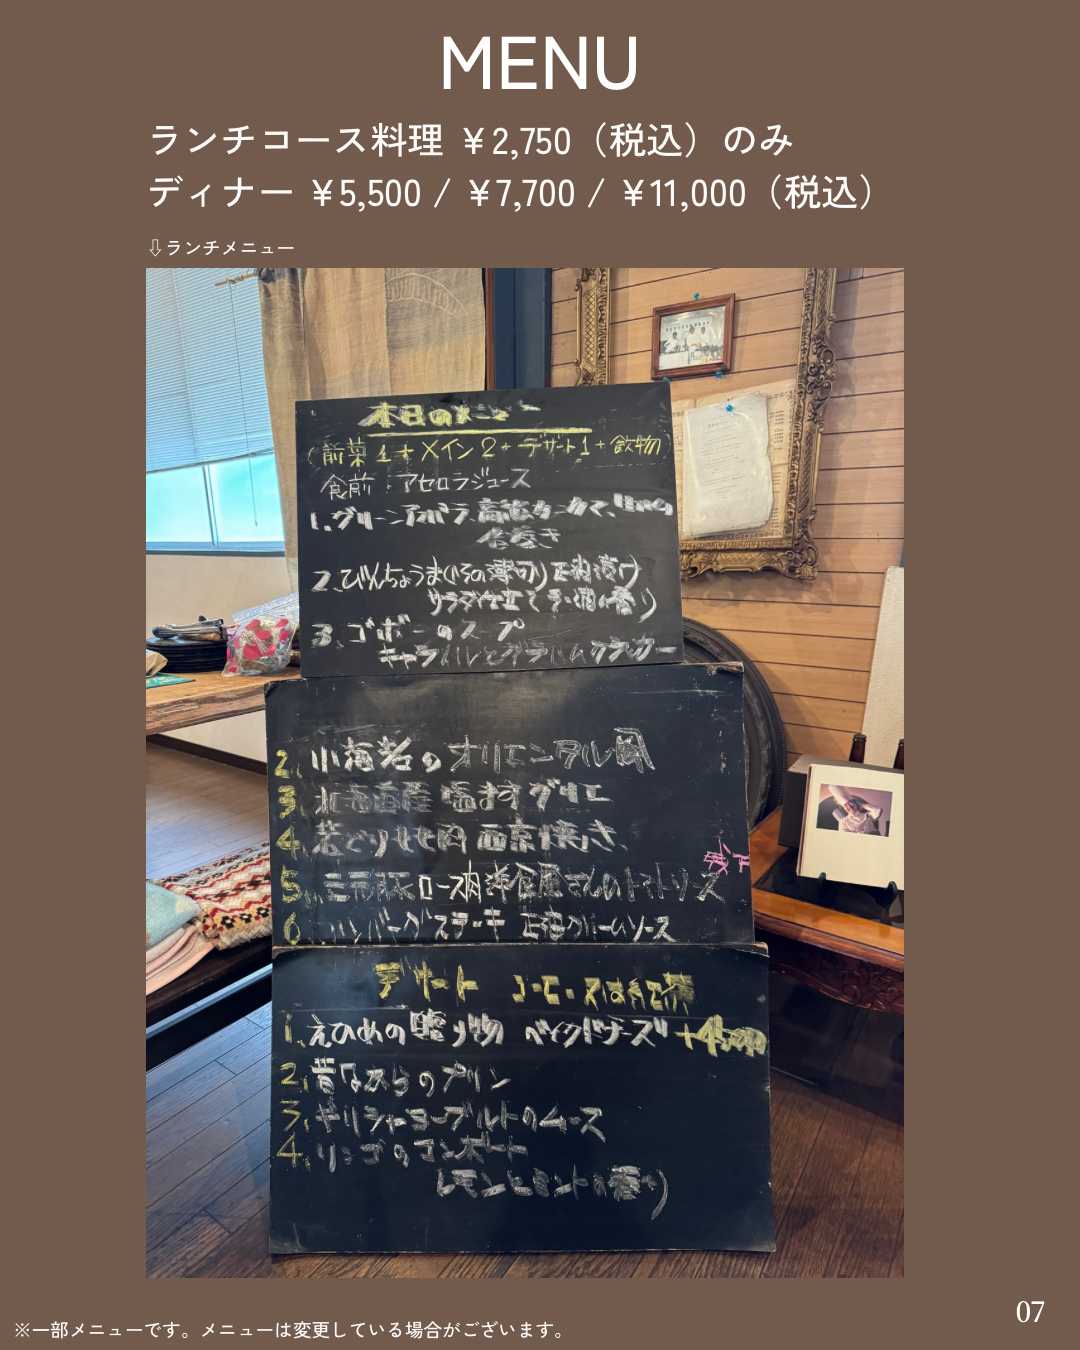 MENU
ランチコース料理 ￥2,750（税込）のみ
ディナー ￥5,500 / ￥7,700 / ￥11,000（税込）
⇩ランチメニュー
本日のメニュー
(前菜1+メイン2+デザート1+飲物)
食前:アセロラジュース
1.グリーンアスパラ
2.びんちょうまぐろの薄切り
サラダ仕立て 香り
3.ゴボーのスープ
キャラメルとグラハムクラッカー
2.小海老のオリエンタル風
3. グリエ
4.若どりもも肉 西京焼き
5. ロース肉 さんのトマトソース
6.ハンバーグステーキ ソース
デザート コーヒー・又は紅茶
1.えひめの贈り物 ベイクドチーズ
2.昔ながらのプリン
3.ギリシャヨーグルトのムース
4.リンゴのコンポート
レモンとミントの香り
※一部メニューです。メニューは変更している場合がございます。
07